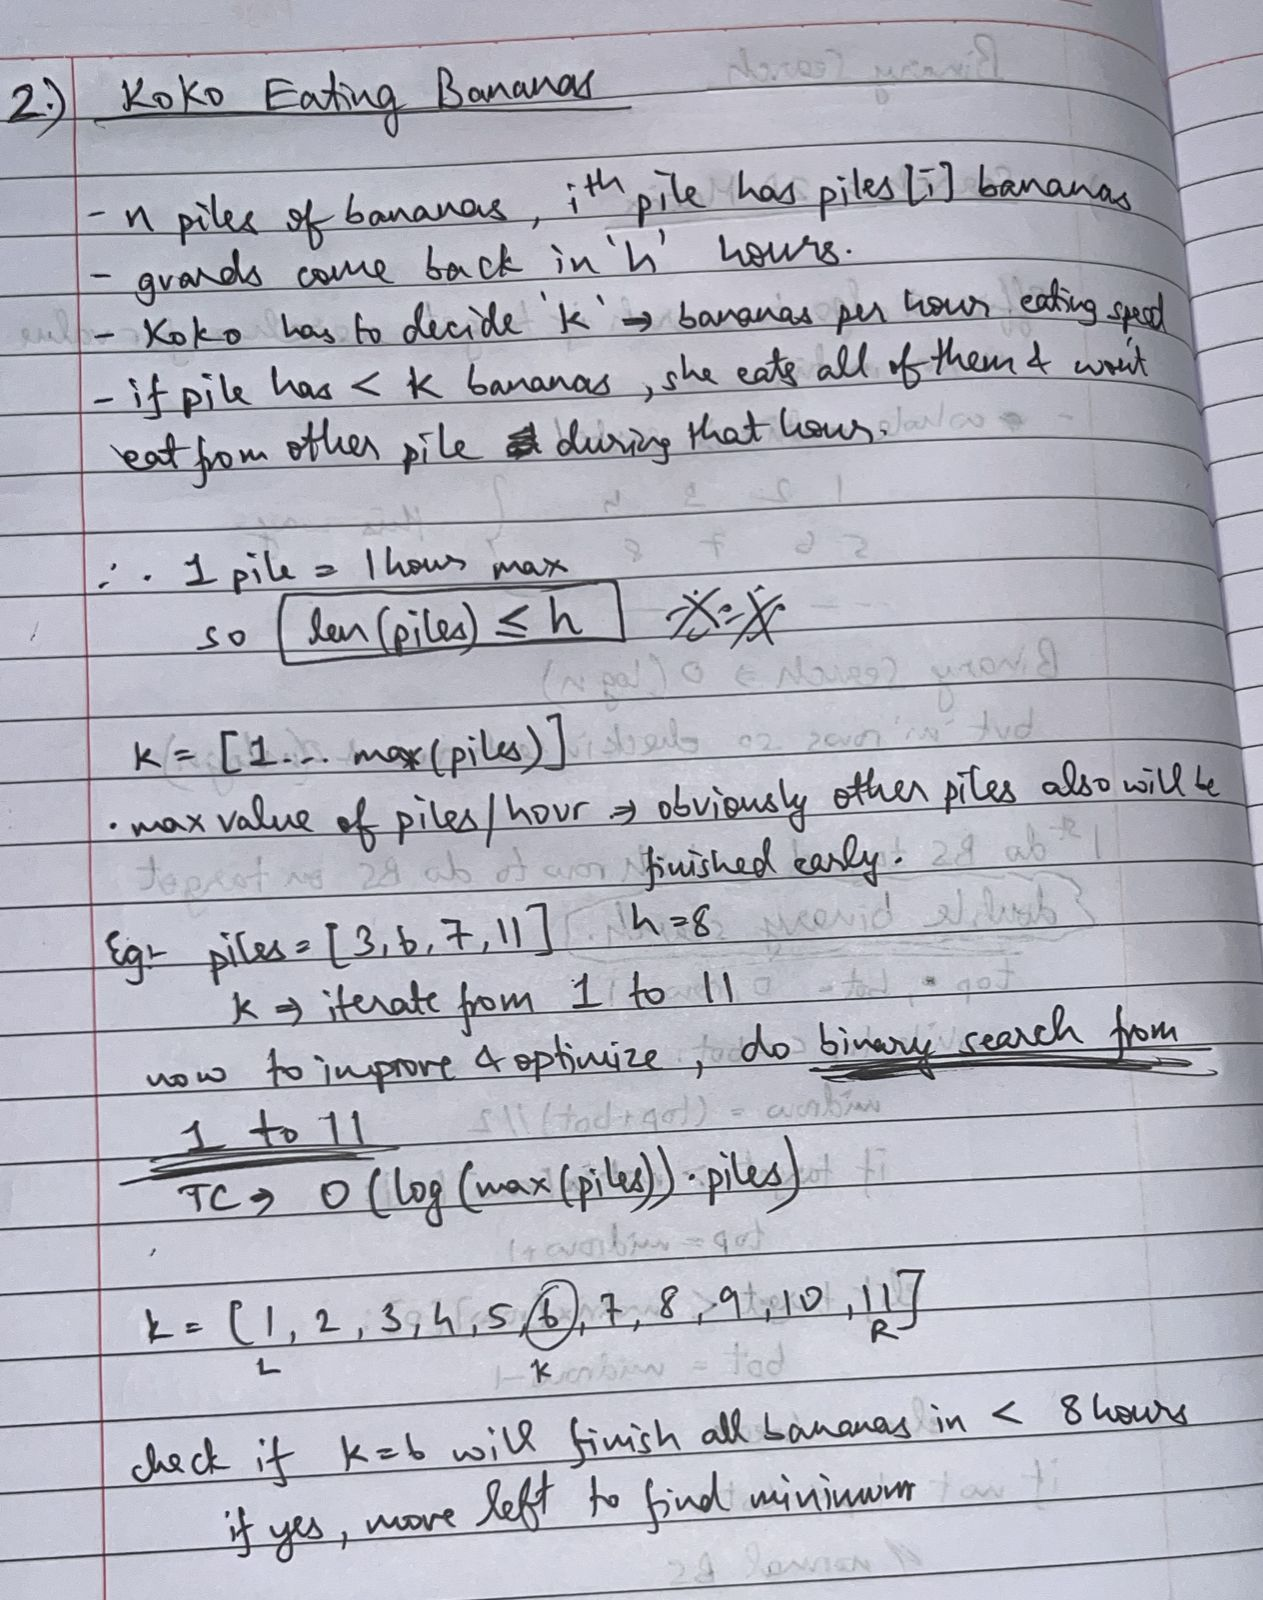 2.) Koko Eating Bananas
- n piles of bananas, ith pile has piles[i] bananas
- guards come back in 'h' hours.
- Koko has to decide 'k' → bananas per hour eating speed
- if pile has < k bananas, she eats all of them & won't
eat from other pile during that hour.
∴ 1 pile = 1 hour max
so len(piles) ≤ h
k = [1... max(piles)]
• max value of piles/hour ⇒ obviously other piles also will be
finished early.
Eg:- piles = [3, 6, 7, 11] h = 8
k ⇒ iterate from 1 to 11
now to improve & optimize, do binary search from
1 to 11
TC → O(log(max(piles)) · piles)
k = [1, 2, 3, 4, 5, 6, 7, 8, 9, 10, 11]
L K R
check if k = 6 will finish all bananas in < 8 hours
if yes, move left to find minimum